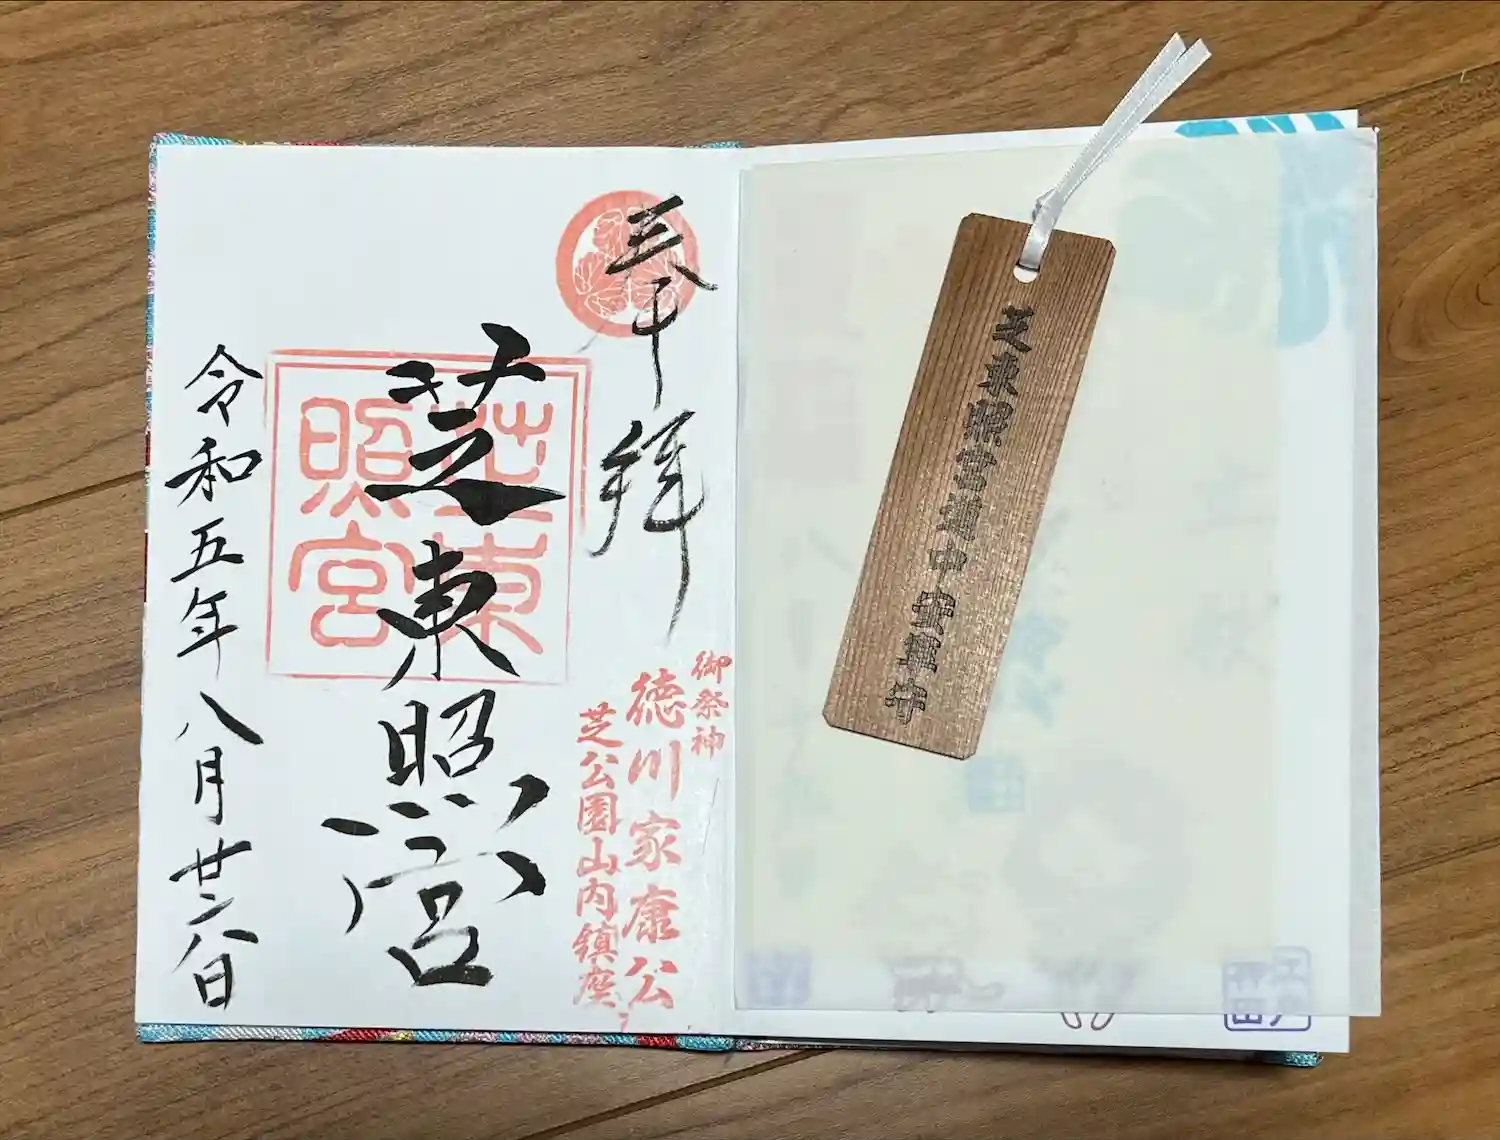 芝東照宮道中安全守
奉拝
御祭神
徳川家康公
芝公園山内鎮座
芝東照宮
芝東
照宮
令和五年八月廿六日